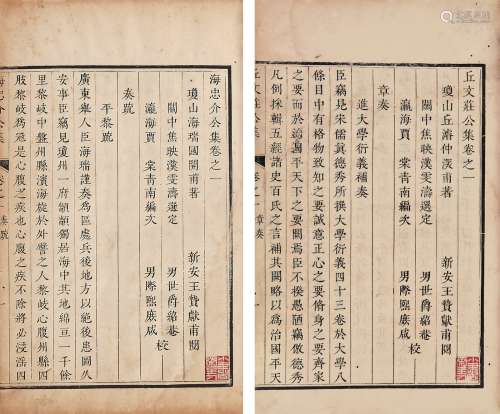 丘文莊公集卷之一
瓊山丘濬仲深甫著　新安王贊獻甫閱
關中焦映漢雯濤選定　男世爵縚菴
瀛海賈棠青南編次　男際熙庶咸　校
章奏
進大學衍義補奏
臣竊見宋儒眞德秀所撰大學衍義四十三卷於大學八
條目中有格物致知之要誠意正心之要脩身之要齊家
之要而於治國平天下之要闕焉臣不揆愚陋竊倣德秀
凡例採輯五經諸史百氏之言補其闕略以爲治國平天
丘文莊公集　卷之一　章奏
海忠介公集卷之一
瓊山海瑞國開甫著　新安王贊獻甫閱
關中焦映漢雯濤選定　男世爵縚菴
瀛海賈棠青南編次　男際熙庶咸　校
奏疏
平黎疏
廣東舉人臣海瑞謹奏爲區處兵後地方以絕後患圖久
安事臣竊見瓊州一府頟頟獨居海中其地綿亘一千餘
里黎岐中盤州縣濱海旋於外譬之人黎岐心腹州縣四
肢黎岐爲寇是心腹之疾也心腹之疾不除將必浸淫四
海忠介公集　卷之一　奏疏